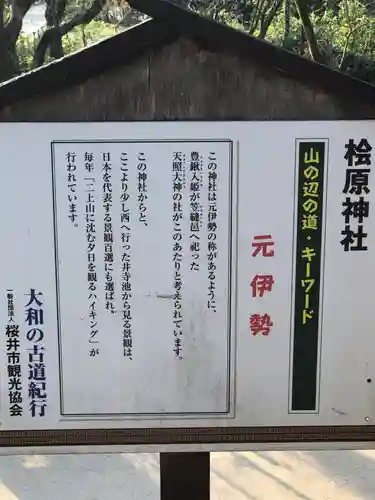 桧原神社
山の辺の道・キーワード
元伊勢
この神社は元伊勢の称があるように、
豊鍬入姫が笠縫邑へ祀った
天照大神の社がこのあたりと考えられています。
この神社からと、
ここより少し西へ行った井寺池から見る景観は、
日本を代表する景観百選にも選ばれ、
毎年「二上山に沈む夕日を観るハイキング」が
行われています。
大和の古道紀行
一般社団法人 桜井市観光協会